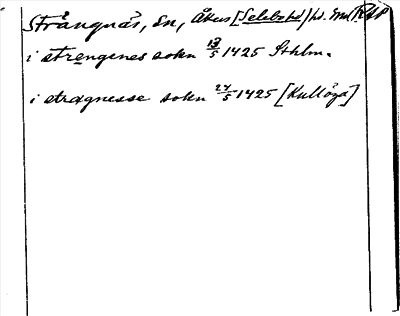 Strängnäs, sn, Åkers [Selebo hd] hd. Sml RAP
i strengenes sokn 13/5 1425 Sthlm.
i strægnesse sokn 24/5 1425 [Kullöga]